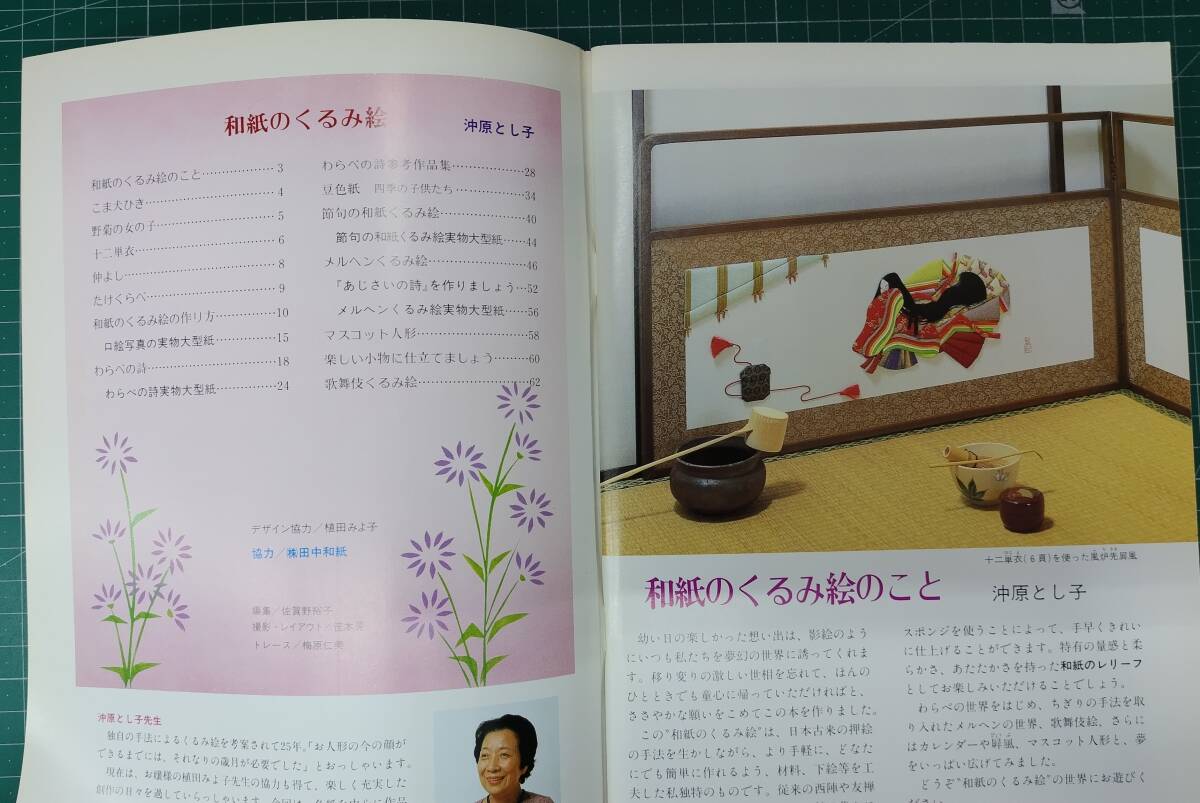 和紙のくるみ絵
沖原とし子
和紙のくるみ絵のこと………………3
こま犬ひき………………4
野菊の女の子………………5
十二単衣………………6
仲よし………………8
たけくらべ………………9
和紙のくるみ絵の作り方…………10
口絵写真の実物大型紙…………15
わらべの詩………………18
わらべの詩実物大型紙…………24
わらべの詩参考作品集………………28
豆色紙 四季の子供たち……………34
節句の和紙くるみ絵………………40
節句の和紙くるみ絵実物大型紙……44
メルヘンくるみ絵………………46
「あじさいの詩」を作りましょう…52
メルヘンくるみ絵実物大型紙……56
マスコット人形………………58
楽しい小物に仕立てましょう………60
歌舞伎くるみ絵………………62
デザイン協力／植田みよ子
協力／㈱田中和紙
編集／佐賀野裕子
撮影・レイアウト／
トレース／梅原仁美
沖原とし子先生
独自の手法によるくるみ絵を考案されて25年。「お人形の今の顔が
できるまでには、それなりの歳月が必要でした」とおっしゃいます。
現在は、お嬢様の植田みよ子先生の協力も得て、楽しく充実した
創作の日々を過していらっしゃいます。
十二単衣(6頁)を使った風炉先屏風
和紙のくるみ絵のこと
沖原とし子
幼い日の楽しかった想い出は、影絵のよう
にいつも私たちを夢幻の世界に誘ってくれま
す。移り変りの激しい世相を忘れて、ほんの
ひとときでも童心に帰っていただければと、
ささやかな願いをこめてこの本を作りました。
この"和紙のくるみ絵"は、日本古来の押絵
の手法を生かしながら、より手軽に、どなた
にでも簡単に作れるよう、材料、下絵等を工
夫した私独特のものです。従来の西陣や友禅
スポンジを使うことによって、手早くきれい
に仕上げることができます。特有の量感と柔
らかさ、あたたかさを持った和紙のレリーフ
としてお楽しみいただけることでしょう。
わらべの世界をはじめ、ちぎりの手法を取
り入れたメルヘンの世界、歌舞伎絵、さらに
はカレンダーや屏風、マスコット人形と、夢
をいっぱい広げてみました。
どうぞ"和紙のくるみ絵"の世界にお遊びく
ださい。